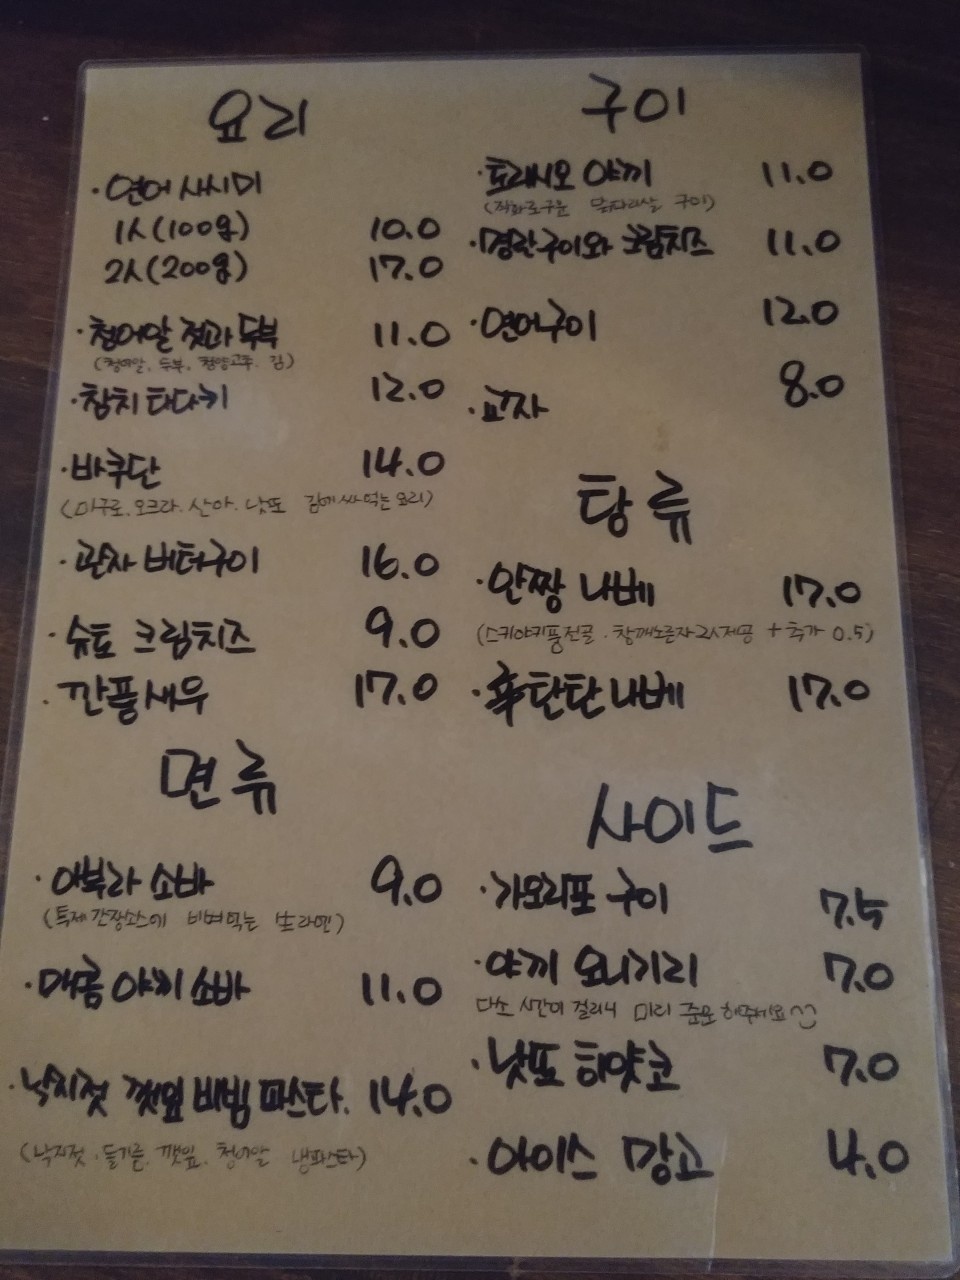 요리
· 연어 사시미
1人(100g) 10.0
2人(200g) 17.0
· 청어알 젓과 두부 11.0
(청어알, 두부, 청양고추, 김)
· 참치 타다키 12.0
· 바쿠단 14.0
(마구로, 오크라, 산마, 낫또 김에 싸먹는 요리)
· 관자 버터구이 16.0
· 슈토 크림치즈 9.0
· 깐풍새우 17.0
면류
· 아부라 소바 9.0
(특제 간장소스에 비벼먹는 生라멘)
· 매콤 야끼소바 11.0
· 낙지젓 깻잎 비빔 파스타. 14.0
(낙지젓, 들기름, 깻잎, 청어알 냉파스타)
구이
· 토리시오 야끼 11.0
(직화로구운 닭다리살 구이)
· 명란구이와 크림치즈 11.0
· 연어구이 12.0
· 교자 8.0
탕류
· 안짱 나베 17.0
(스키야키풍전골. 참깨노른자 2人제공 + 추가 0.5)
· 辛탄탄나베 17.0
사이드
· 가오리포 구이 7.5
· 야끼 오니기리 7.0
다소 시간이 걸리니 미리 주문 해주세요^^
· 낫또 히얏코 7.0
· 아이스 망고 4.0